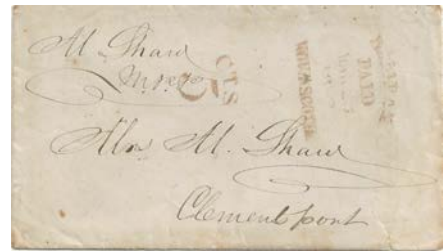 M. Shaw
M.P.P.
CTS
5
NOVA SCOTIA
PAID
Mrs M. Shaw
Clementsport